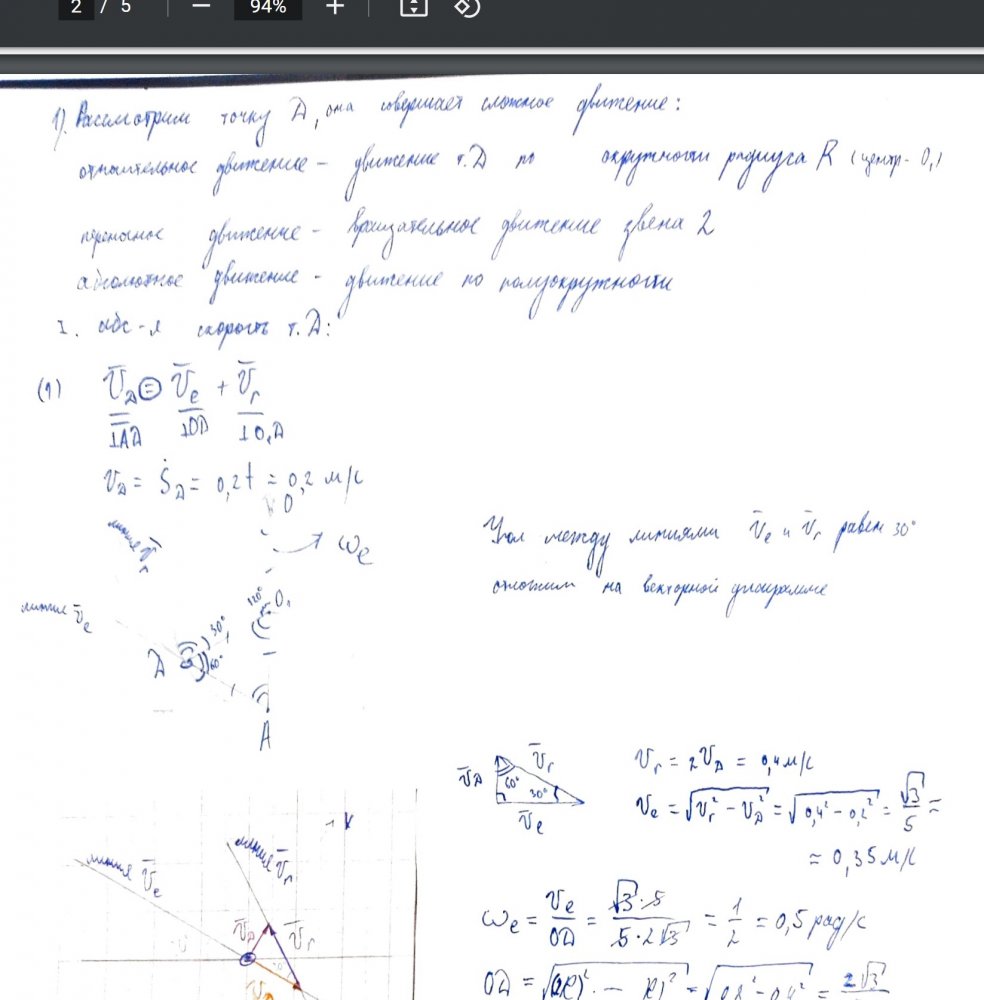 2 / 5 — 94% +
1). Рассмотрим точку D, она совершает сложное движение:
относительное движение – движение т. D по окружности радиуса R (центр - O₁)
переносное движение – вращательное движение звена 2
абсолютное движение – движение по полуокружности
I. абс-я скорость т. D:
(1) V̄_D = V̄_e + V̄_r
⊥AD ⊥OD ⊥O₁D
V_D = Ṡ_D = 0,2t = 0,2 м/с
O
линия V̄_r
ω_e
Угол между линиями V̄_e и V̄_r равен 30°
отложим на векторной диаграмме
линие V̄_e
120° O₁
30°
D 60°
A
V̄_D V̄_r 60° 30° V̄_e
V_r = 2V_D = 0,4 м/с
V_e = √(V_r² - V_D²) = √(0,4² - 0,2²) = √3/5 =
≈ 0,35 м/с
линие V̄_e
линие V̄_r
V̄_D V̄_r
ω_e = V_e/OD = √3·5/5·2√3 = 1/2 = 0,5 рад/с